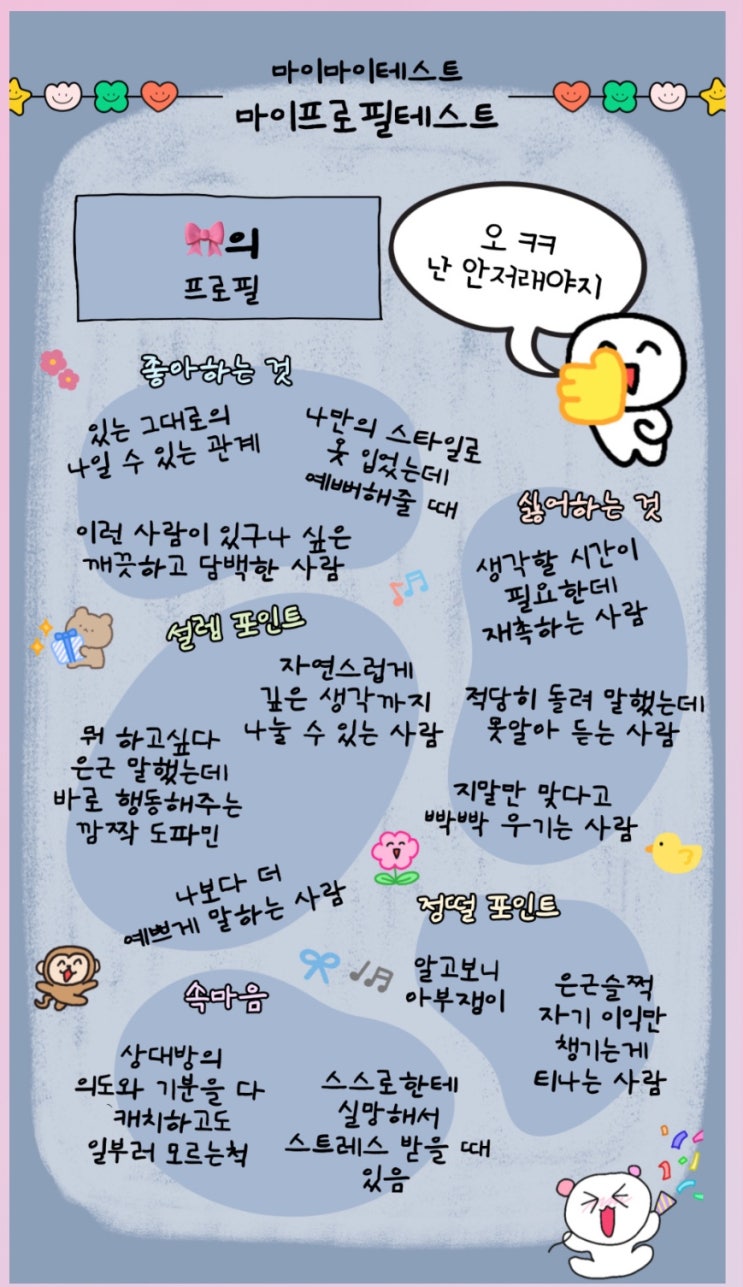 마이마이테스트
마이프로필테스트
🎀의
프로필
오 ㅋㅋ
난 안저래야지
좋아하는 것
있는 그대로의
나일 수 있는 관계
나만의 스타일로
옷 입었는데
예뻐해줄 때
이런 사람이 있구나 싶은
깨끗하고 담백한 사람
싫어하는 것
생각할 시간이
필요한데
재촉하는 사람
적당히 돌려 말했는데
못알아 듣는 사람
지말만 맞다고
빡빡 우기는 사람
설렘 포인트
자연스럽게
깊은 생각까지
나눌 수 있는 사람
뭐 하고싶다
은근 말했는데
바로 행동해주는
깜짝 도파민
나보다 더
예쁘게 말하는 사람
정떨 포인트
알고보니
아부쟁이
은근슬쩍
자기 이익만
챙기는게
티나는 사람
속마음
상대방의
의도와 기분을 다
캐치하고도
일부러 모르는척
스스로한테
실망해서
스트레스 받을 때
있음